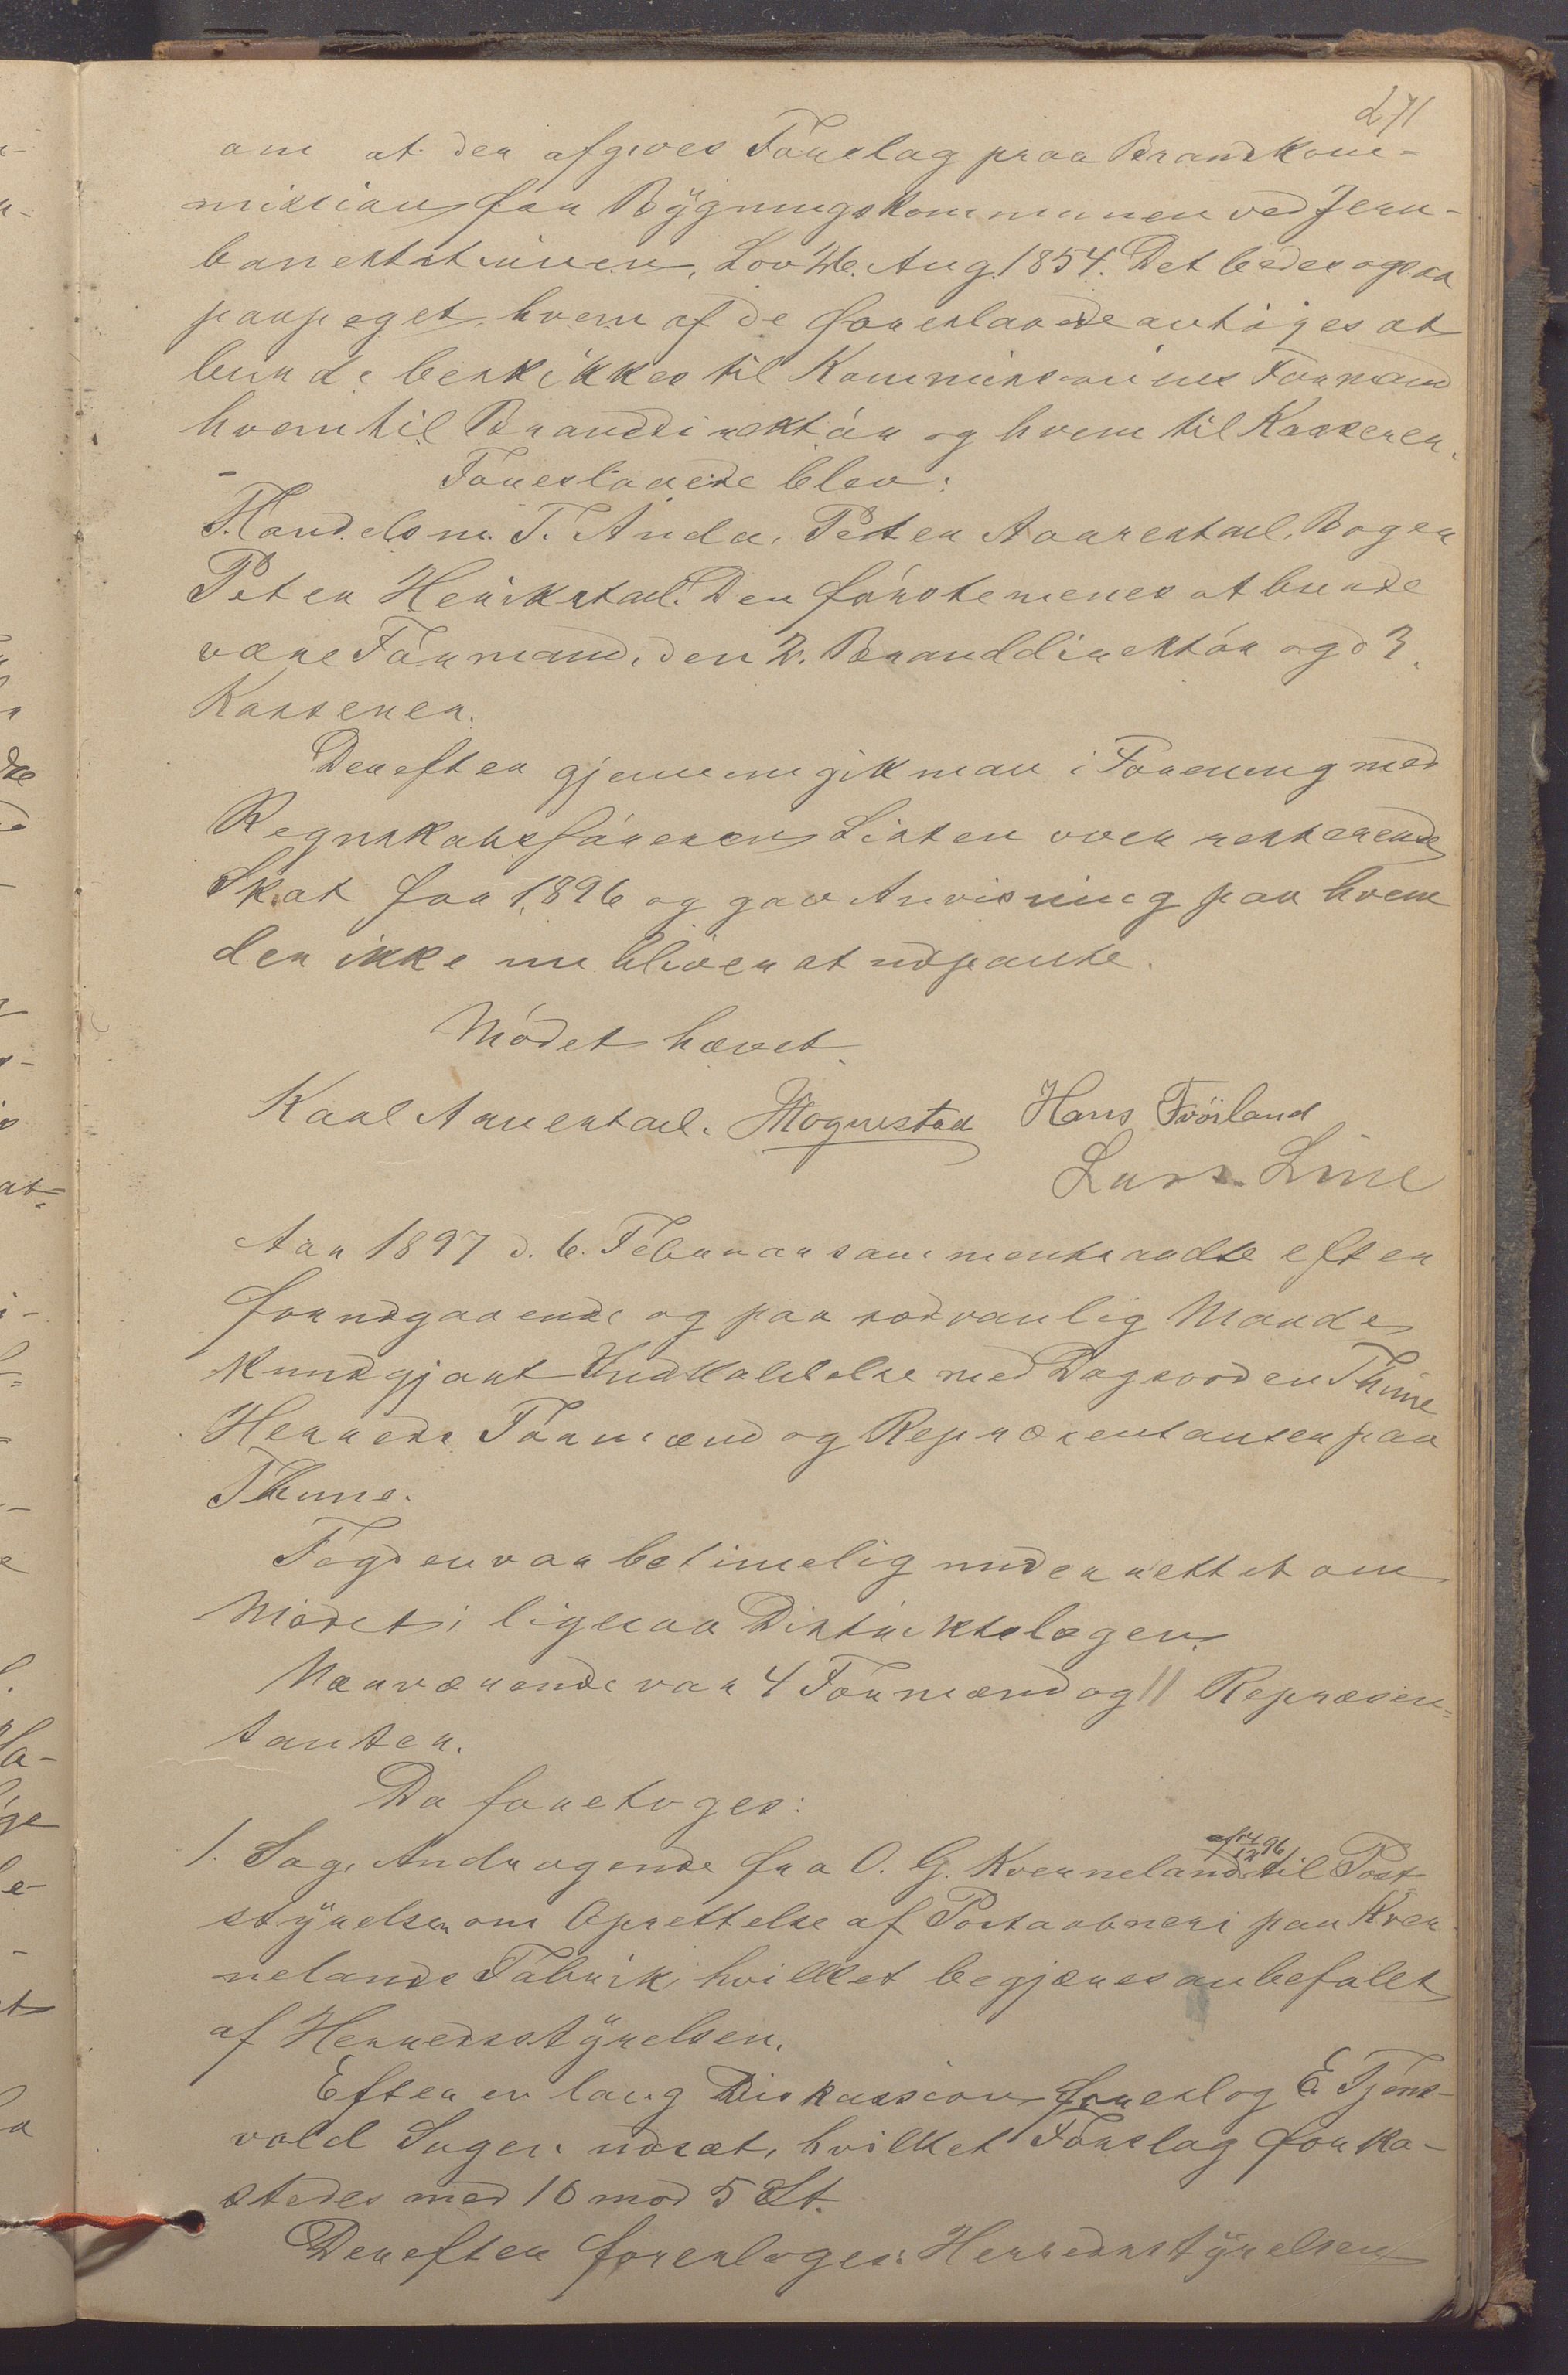 271
om at der afgives Forslag paa Brandkom-
mission for Bygningskommunen ved Jern-
banestationen, Lov 26. Aug. 1854. Det bedes ogsaa
paapeget, hvem af de foreslaaede antages at
burde beskikkes til Kommissionens Formand
hvem til Branddirektör og hvem til Kasserer.
Foreslaaede blev:
Handelsm. T. Anda, Peter Aarrestad, Bager
Peter Herikstad. Den förste menes at burde
være Formand, den 2. Branddirektör og d 3.
Kasserer.
Derefter gjennemgik man i Forening med
Regnskabsföreren Listen over resterende
Skat for 1896 og gav Anvisning paa hvem
der ikke nu bliver at udpante.
Mödet hævet.
Karl Aarrestad. Mognestad Hans Tröiland
Lars Line
Aar 1897 d. 6. Februar sammentraadte efter
forudgaaende og paa sædvanlig Maade
kundgjort Indkaldelse med Dagsorden Thime
Herreds Formænd og Repræsentanter paa
Thime.
Fogden var betimelig underrettet om
Mödet; ligesaa Distriktslægen.
Nærværende var 4 Formænd og 11 Repræsen-
tanter.
Da foretoges:
1. Sag. Andragende fra O. G. Kverneland af 14/12 96 til Post
styrelsen om Oprettelse af Postaabneri paa Kver-
nelands Fabrik, hvilket begjæres anbefalet
af Herredsstyrelsen.
Efter en lang Diskassion foreslog E. Tjöns-
vold Sagen udsat, hvilket Forslag forka-
stedes med 10 mod 5 St.
Derefter foresloges: Herredsstyrelsen